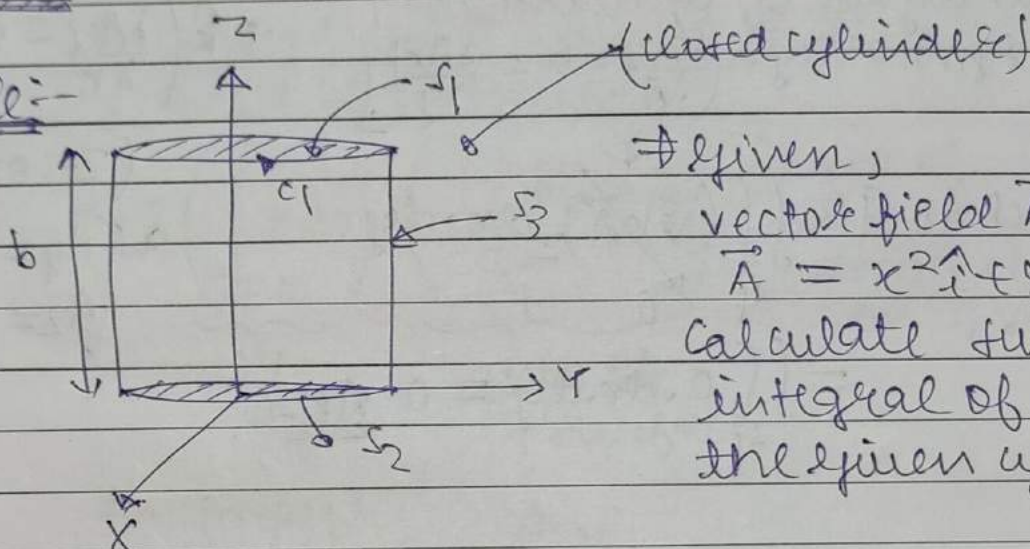 Z
(closed cylinder)
S1
C1
S3
b
Y
S2
X
⇒ given,
vector field
A⃗ = x²î +
Calculate
integral of
the given